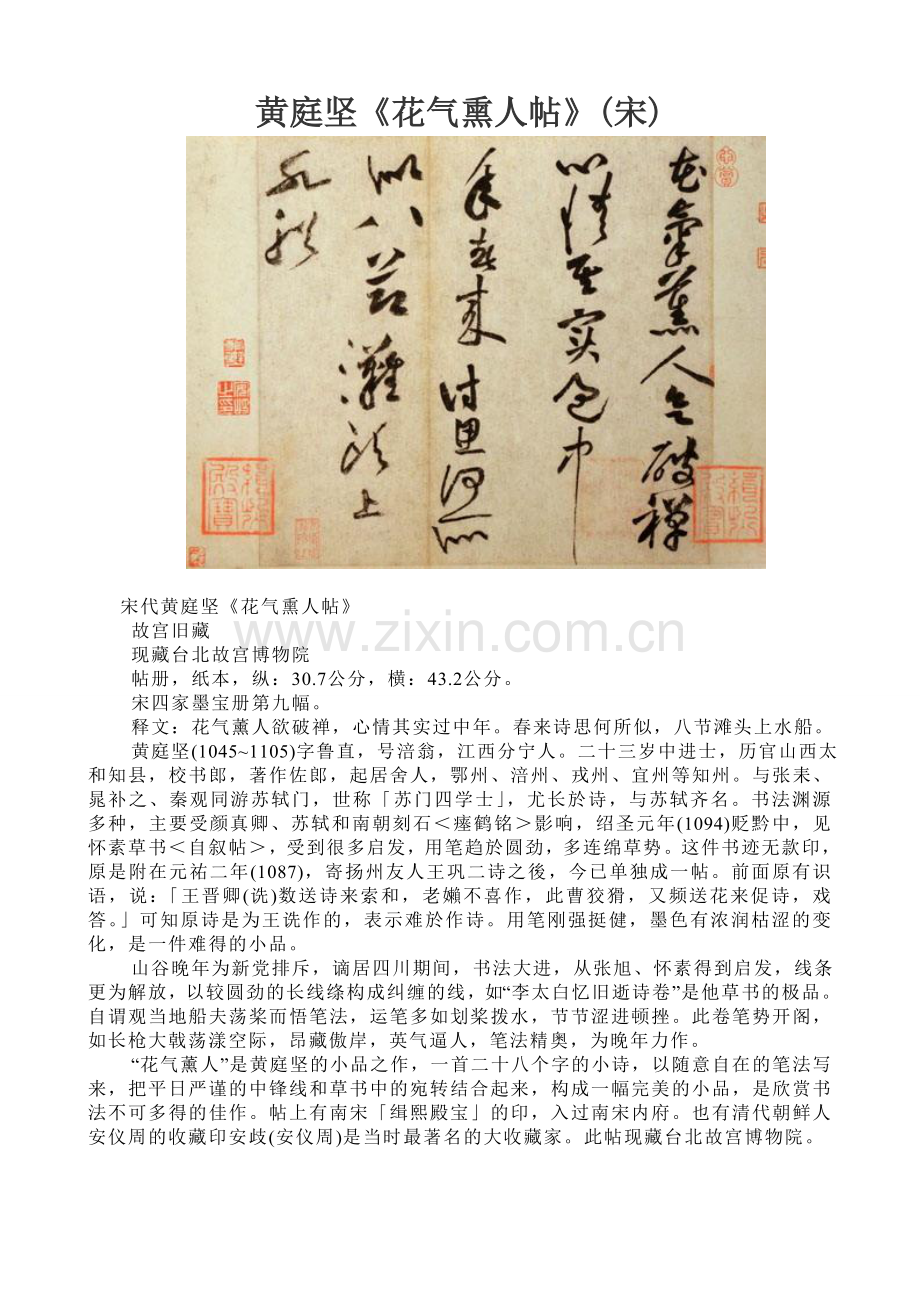 黄庭坚《花气熏人帖》(宋)
花氣薰人欲破禪
心情其实過中
年春来诗思何所
似八节灘頭上
水船
緝熙殿寶
宋代黄庭坚《花气熏人帖》
故宫旧藏
现藏台北故宫博物院
帖册，纸本，纵：30.7公分，横：43.2公分。
宋四家墨宝册第九幅。
释文：花气薰人欲破禅，心情其实过中年。春来诗思何所似，八节滩头上水船。
黄庭坚(1045~1105)字鲁直，号涪翁，江西分宁人。二十三岁中进士，历官山西太
和知县，校书郎，著作佐郎，起居舍人，鄂州、涪州、戎州、宜州等知州。与张耒、
晁补之、秦观同游苏轼门，世称「苏门四学士」，尤长於诗，与苏轼齐名。书法渊源
多种，主要受颜真卿、苏轼和南朝刻石＜瘗鹤铭＞影响，绍圣元年(1094)贬黔中，见
怀素草书＜自叙帖＞，受到很多启发，用笔趋於圆劲，多连绵草势。这件书迹无款印，
原是附在元祐二年(1087)，寄扬州友人王巩二诗之後，今已单独成一帖。前面原有识
语，说：「王晋卿(诜)数送诗来索和，老嬾不喜作，此曹狡猾，又频送花来促诗，戏
答。」可知原诗是为王诜作的，表示难於作诗。用笔刚强挺健，墨色有浓润枯涩的变
化，是一件难得的小品。
山谷晚年为新党排斥，谪居四川期间，书法大进，从张旭、怀素得到启发，线条
更为解放，以较圆劲的长线绦构成纠缠的线，如“李太白忆旧逝诗卷”是他草书的极品。
自谓观当地船夫荡桨而悟笔法，运笔多如划桨拨水，节节涩进顿挫。此卷笔势开阁，
如长枪大戟荡漾空际，昂藏傲岸，英气逼人，笔法精奥，为晚年力作。
“花气薰人”是黄庭坚的小品之作，一首二十八个字的小诗，以随意自在的笔法写
来，把平日严谨的中锋线和草书中的宛转结合起来，构成一幅完美的小品，是欣赏书
法不可多得的佳作。帖上有南宋「缉熙殿宝」的印，入过南宋内府。也有清代朝鲜人
安仪周的收藏印安歧(安仪周)是当时最著名的大收藏家。此帖现藏台北故宫博物院。
www.zixin.com.cn